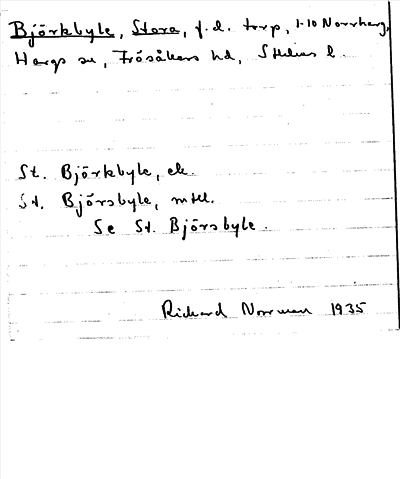 Björkbyle, Stora, f.d. torp, 1-10 Norrharg,
Hargs sn, Frösåkers hd, Sthlms l.
St. Björkbyle, ek.
St. Björsbyle, mtl.
Se St. Björsbyle.
Richard Norrman 1935